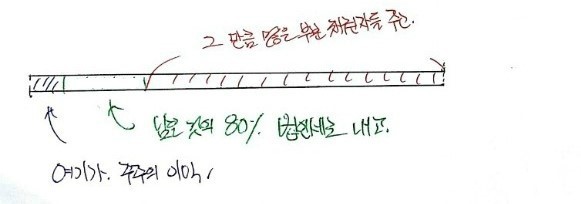 그 만큼 많은 부분 채권자들 주인.
남은 것의 80% 법인세로 내고.
여기가 주주의 이익,